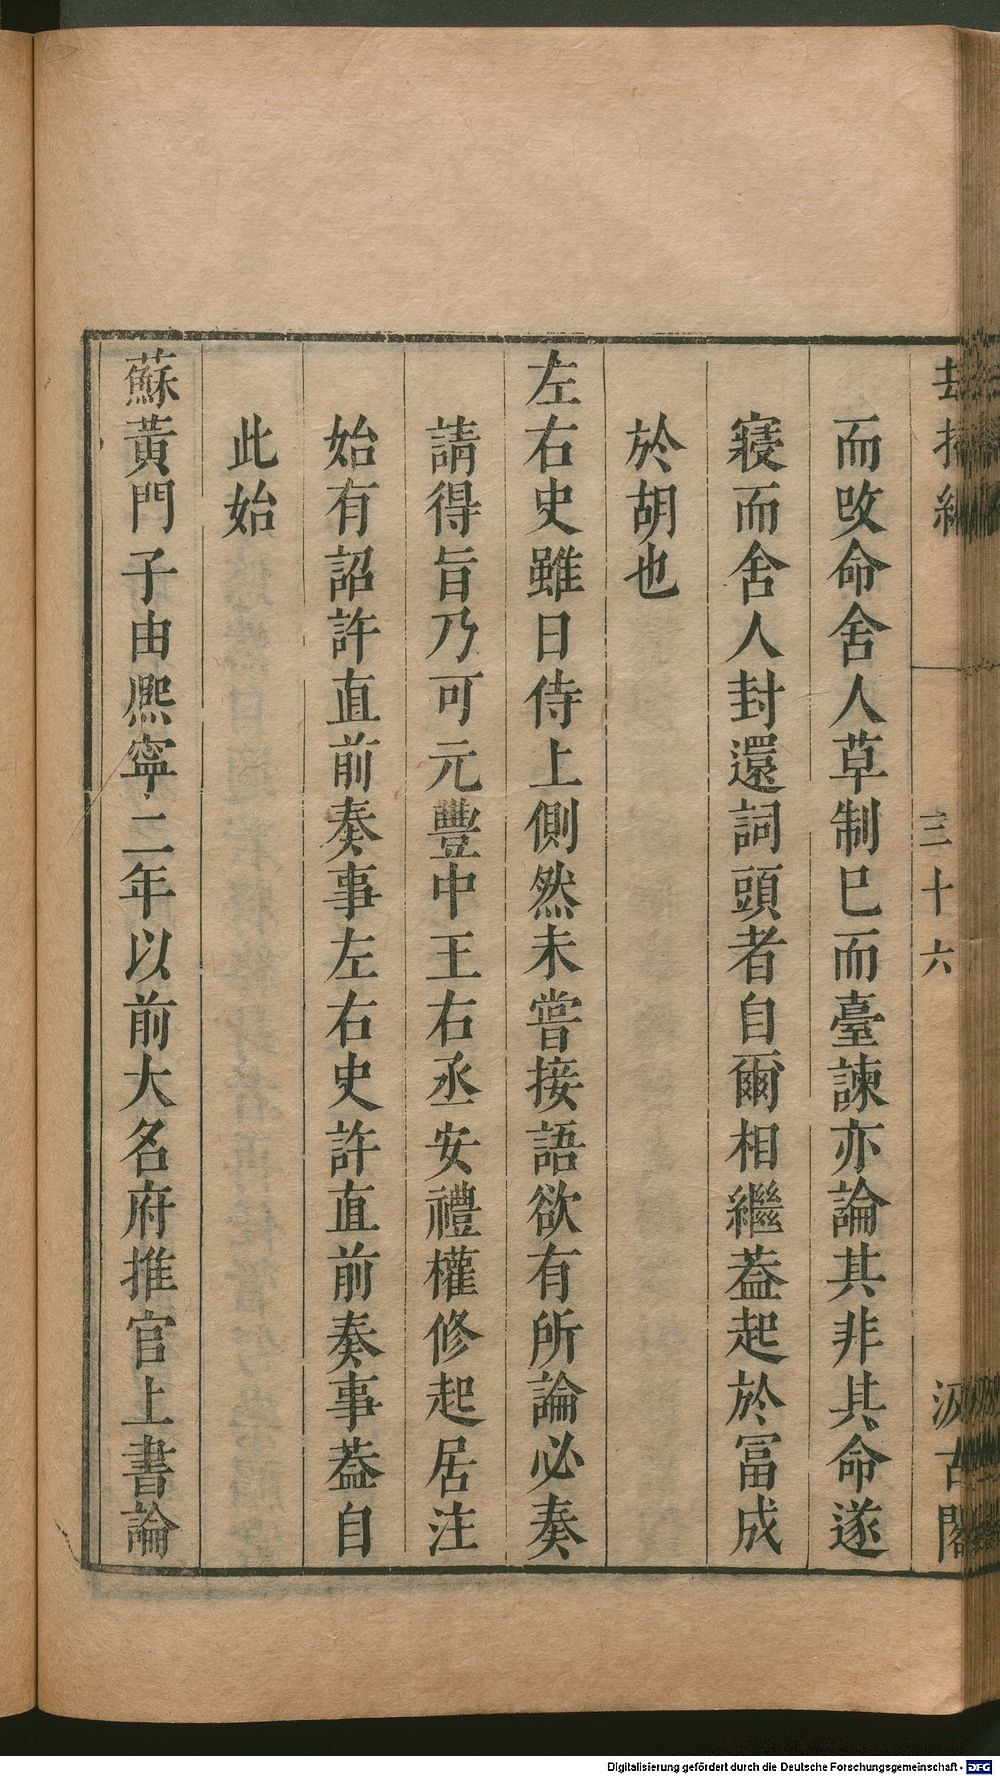 却掃編
三十六
汲古閣
而改命舍人草制巳而臺諫亦論其非其命遂
寢而舍人封還詞頭者自爾相繼葢起於富成
於胡也
左右史雖日侍上側然未嘗接語欲有所論必奏
請得旨乃可元豐中王右丞安禮權修起居注
始有詔許直前奏事左右史許直前奏事葢自
此始
蘇黃門子由熈寧二年以前大名府推官上書論
Digitalisierung gefördert durch die Deutsche Forschungsgemeinschaft - DFG